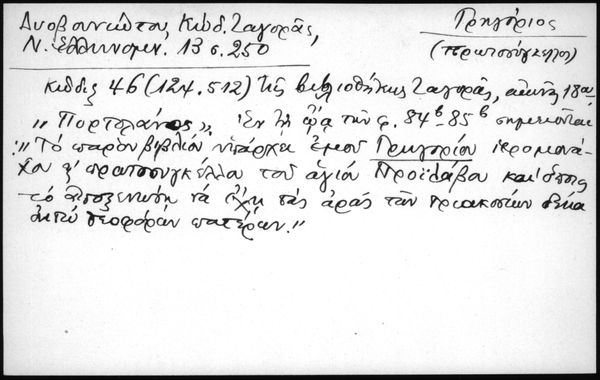 Δυοβουνιώτου, Κώδ. Ζαγορᾶς,
Ν. Ἑλληνομν. 13 σ. 250
Γρηγόριος
(πρωτοσύγκελλος)
Κῶδιξ 46 (124. 512) τῆς βιβλιοθήκης Ζαγορᾶς, αἰῶνος 18ου
"Πορτολάνος". Ἐν τῇ ᾤᾳ τῶν φ. 84β-85β σημειοῦται
:"Τὸ παρὸν βιβλίον ὑπάρχει ἐμοῦ Γρηγορίου ἱερομονά-
χου κ' πρωτοσυγκέλλου τοῦ ἁγίου Προϊλάβου καὶ ὅποιος
τὸ ἀποξενώσῃ νὰ ἔχῃ τὰς ἀρὰς τῶν τριακοσίων δέκα
ὀκτὼ θεοφόρων πατέρων."